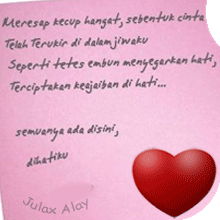 Meresap kecup hangat, sebentuk cinta
Telah Terukir di dalam jiwaku
Seperti tetes embun menyegarkan hati,
Terciptakan keajaiban di hati...
semuanya ada disini,
dihatiku
Julax Alay